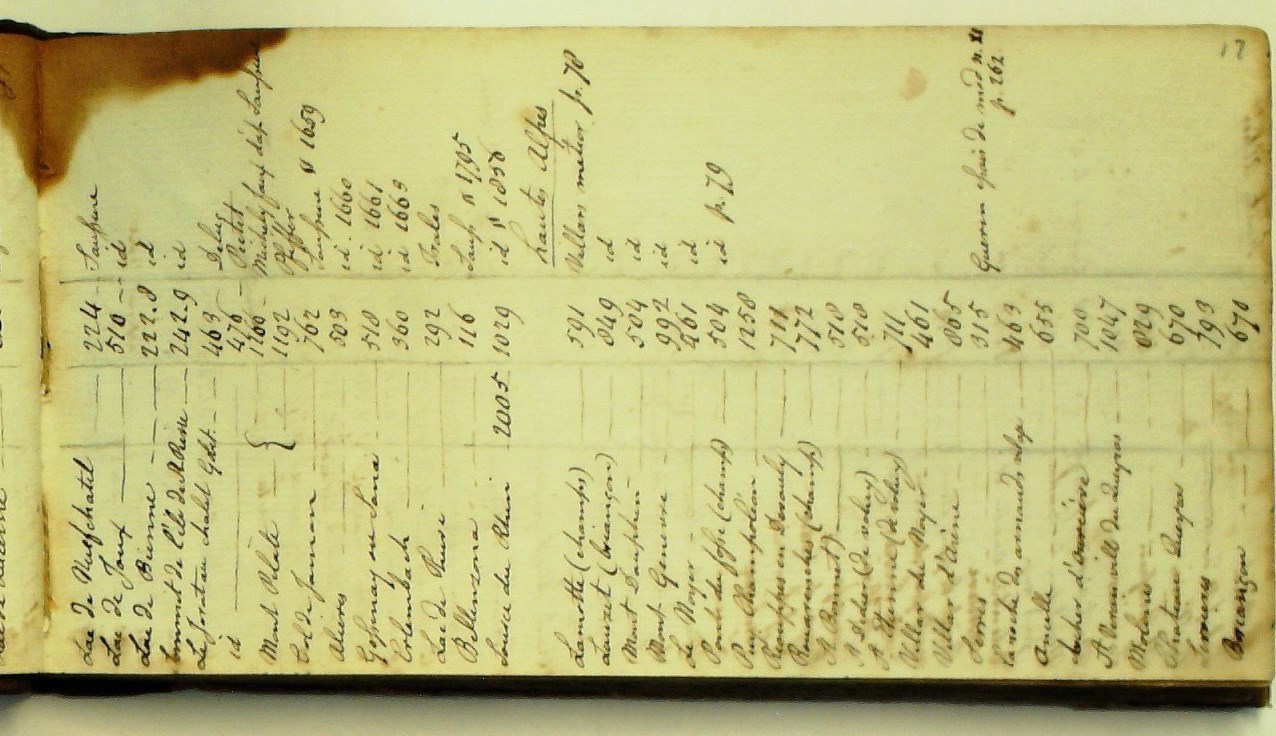 17
Lac de Neufchatel 224 Saussure
Lac de Joux 510 id
Lac de Bienne 222.8 id
Sommet de l'ile de St Pierre 242.9 id
Le Joratau chalet 463 Deluc
id 476 Pictet
Mont Pilate { 1166
1192 Pfyffer
Col de Jaman 762 Saussure § 1659
Alieres 503 id. 1660
Gessenay en Sana 518 id 1661
Erlembach 360 id 1663
Lac de 292 Trales
Bellinzona 116 Sauss § 1795
Source du Rhin 2005 1029 id § 1858
hautes Alpes
Lamotte (champs) 391 Villars meteor p. 78
Lauzet (briançon) 849 id
Mont Dauphin 504 id
Mont Genevre 992 id
Le Noyer 461 id
Pont du fossé (champs) 504 id p. 79
Puy Champoléon 1258
Rouanches (champs) 772
St Bonnet 518
St Didier (Devoluy) 510
St Etienne (Devoluy) 711
Villar de Noyer 461
Villar d'Arène 865
Serres 315 Guerin p. 262
la roche des arnauds 463
Ancelle 655
700
St Veran 1047
Molines 829
Chateau Queyras 670
793
Briançon 670